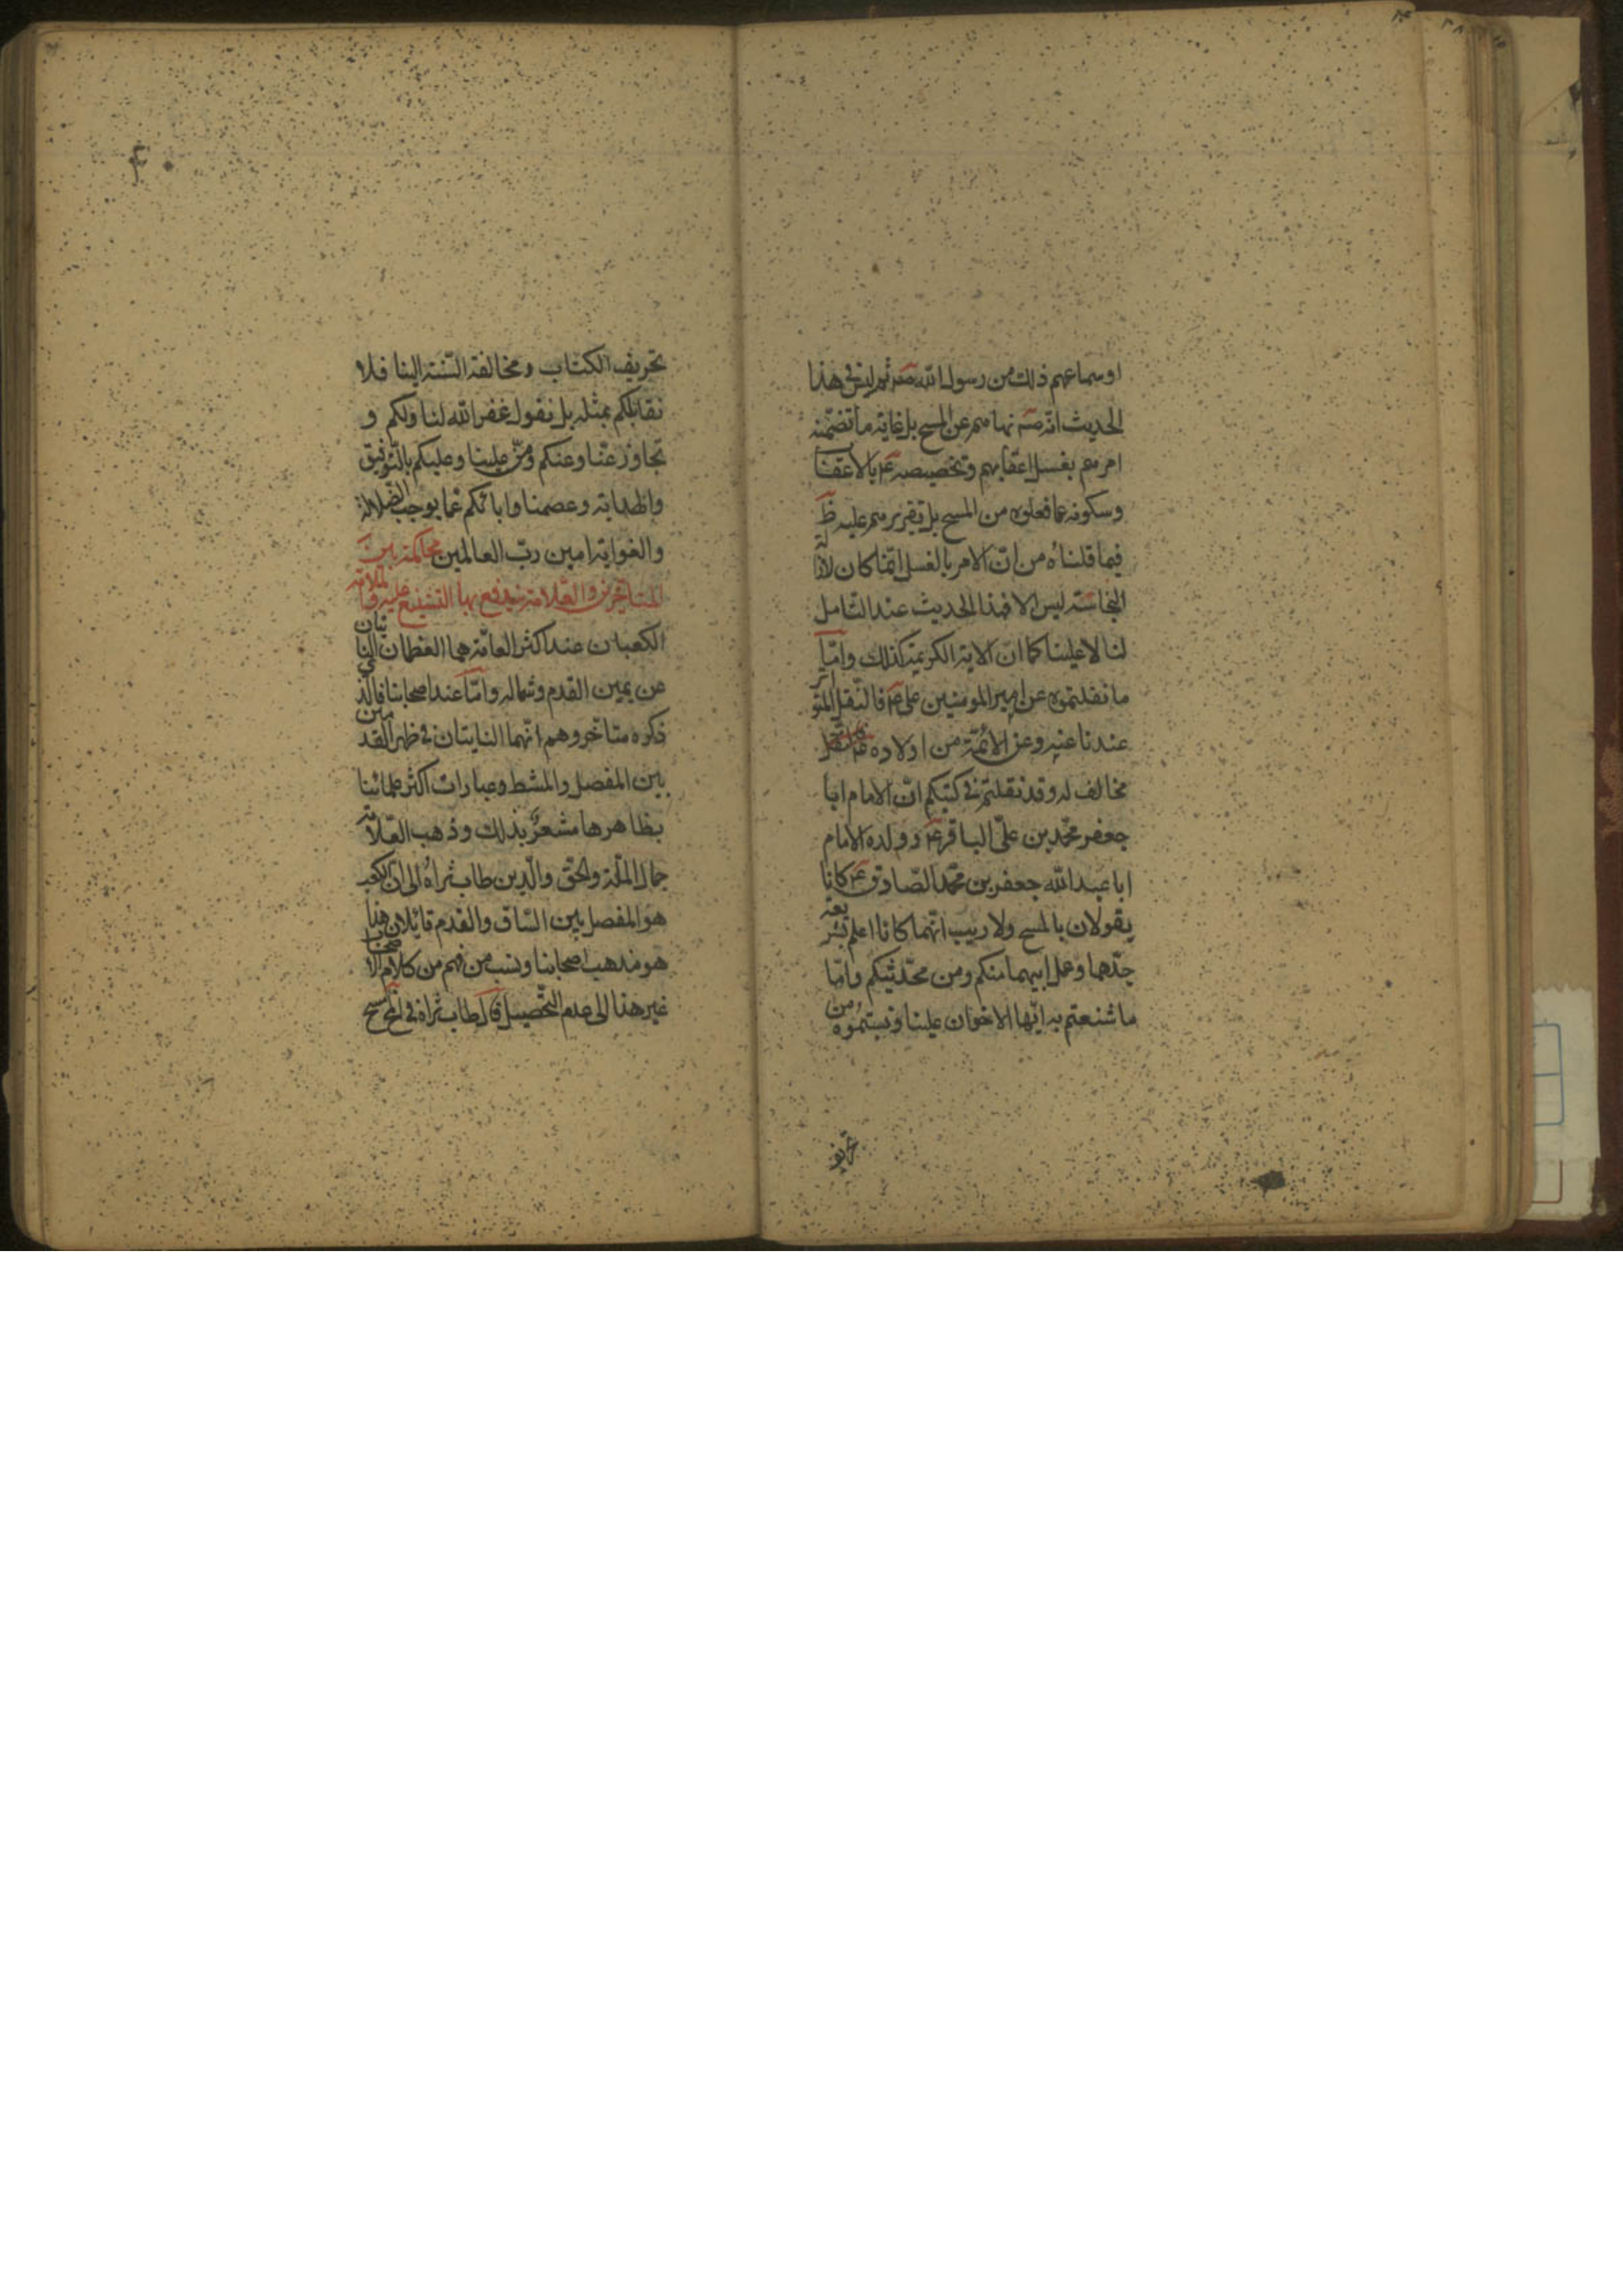 او سماعهم ذلك من رسول الله صه ثم ليس في هذا
الحديث انه صه نهاهم عن المسح بل غاية ما تضمنه
امرهم بغسل اعقابهم وتخصيصه ع بالاعقاب
وسكوته عما فعلوه من المسح بل تقريرهم عليه ظ
فيما قلناه من ان الامر بالغسل انما كان لازالة
النجاسة ليس الا فهذا الحديث عند التامل
لنا لا علينا كما ان الاية الكريمة كذلك واما
ما نقلتموه عن امير المومنين على ع فالنقل المتواتر
عندنا عنه وعن الائمة من اولاده
مخالف له وقد نقلتم في كتبكم ان الامام ابا
جعفر محمد بن على الباقر ع وولده الامام
ابا عبد الله جعفر بن محمد الصادق ع كانا
يقولان بالمسح ولا ريب انهما كانا اعلم بشريعة
جدهما وعمل ابيهما منكم ومن محدثيكم واما
ما شنعتم به ايها الاخوان علينا ونسبتموه من
تحريف
تحريف الكتاب ومخالفة السنة الينا فلا
نقابلكم بمثله بل نقول غفر الله لنا ولكم و
تجاوز عنا وعنكم ومن علينا وعليكم بالتوفيق
والهداية وعصمنا واياكم عما يوجب الضلالة
والغواية امين رب العالمين محاكمة بين
المتاخرين والعلامة يندفع بها التشنيع عليه
الكعبان عند اكثر العامة هما العظمان الناتيان
عن يمين القدم وشماله واما عند اصحابنا فالذي
ذكره متاخروهم انهما النابتان في ظهر القدمين
بين المفصل والمشط وعبارات اكثر علمائنا
بظاهرها مشعر بذلك وذهب العلامة
جمال الملة والحق والدين طاب ثراه الى ان الكعب
هو المفصل بين الساق والقدم قائلا ان هذا
هو مذهب اصحابنا ونسب من فهم من كلام الاصحاب
غير هذا الى عدم التحصيل قال طاب ثراه في